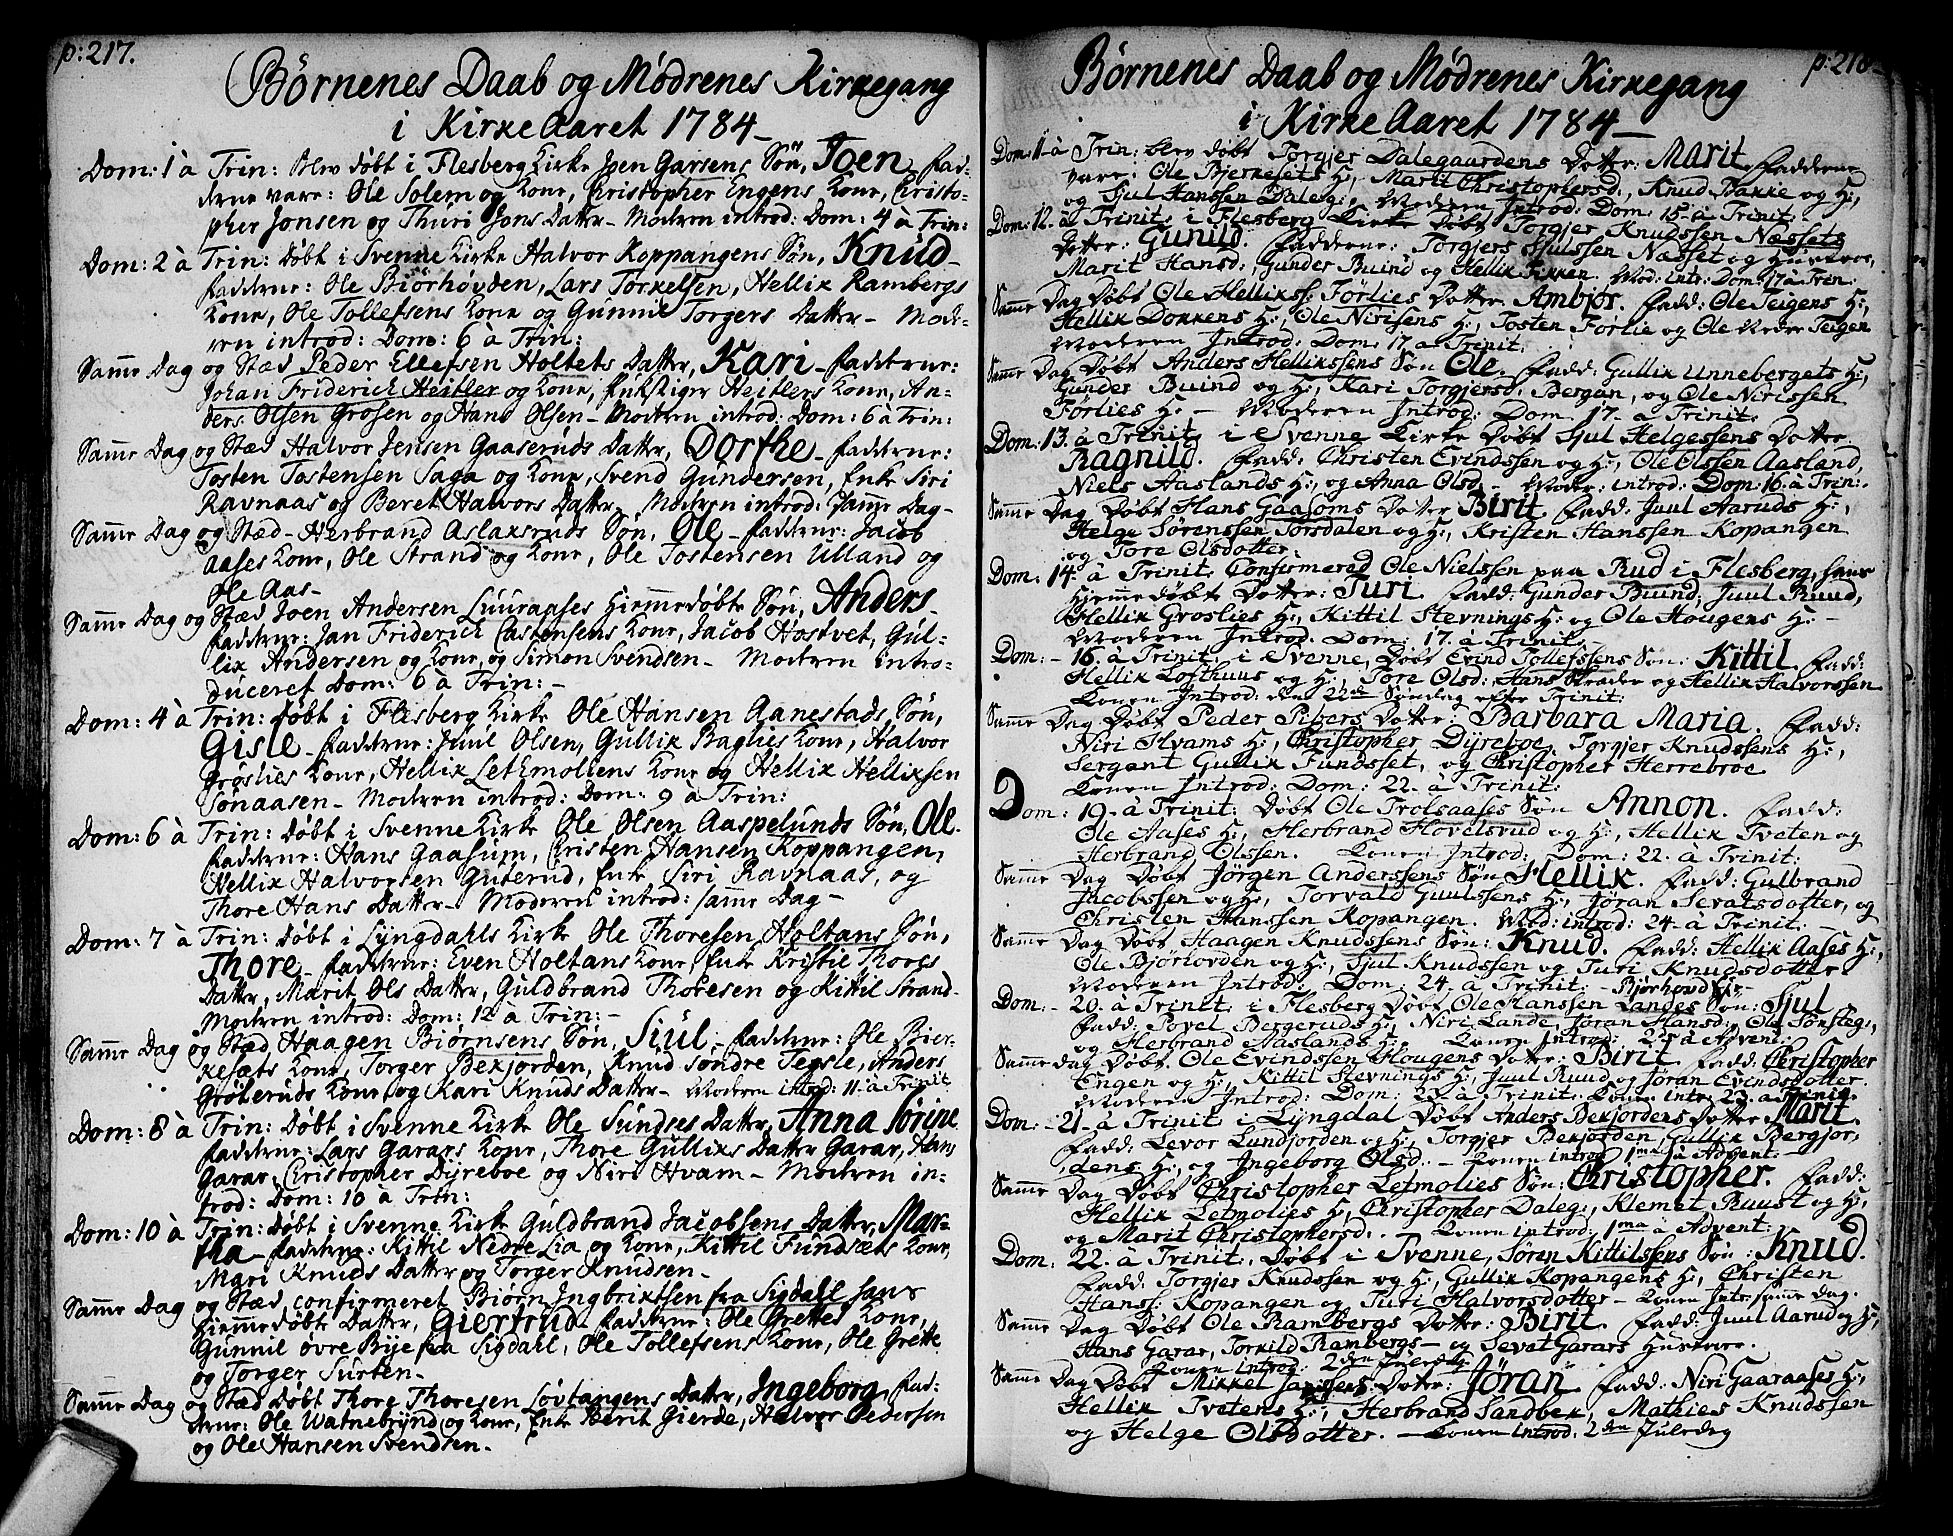 p: 217.
Börnenes Daab og Mödrenes Kirkegang
i Kirke Aaret 1784
Dom: 1 à Trin: blev døbt i Flesberg Kirke Joen Garsens Søn, Joen, fad-
derne vare: Ole Solem og Kone, Christopher Engens Kone, Christo-
pher Jonsen og Thuri Jons Datter – Modren introd: Dom: 4 à Trin:
Dom: 2 à Trin: døbt i Svenne Kirke Halvor Koppangens Søn, Knud
fadderne: Ole Biörhövden, Lars Torkelsen, Hellik Rambergs
Kone, Ole Tollefsens Kone og Gunnil Torgers Datter – Mod-
ren introd: Dom: 6 à Trin:
Samme Dag og Stæd Peder Ellefsen Holtets Datter, Kari – fadderne:
Johan Friderich Heitler og Kone, Heitlers Kone, An-
ders Olsen Grosen og Hans Olsen – Modren introd: Dom: 6 à Trin:
Samme Dag og Stæd Halvor Jensen Gaaseruds Datter, Dorthe – fadderne:
Tosten Tostensen Saga og Kone, Svend Gundersen, Enke Siri
Ravnaas og Beret Halvors Datter – Modren introd: samme Dag –
Samme Dag og Stæd – Herbrand Aslaksruds Søn, Ole – fadderne: Jacob
Aases Kone, Ole Strand og Kone, Ole Tostensen Ulland og
Ole Aas –
Samme Dag og Stæd Joen Andersen Luuraases hiemmedøbte Søn, Anders –
fadderne: Jan Friderich Castensens Kone, Jacob Hostvet, Gul-
lik Andersen og Kone, og Simon Svendsen – Modren intro-
duceret Dom: 6 à Trin: –
Dom: 4 à Trin: døbt i Flesberg Kirke Ole Hansen Aanestads Søn,
Gisle – fadderne: Juul Olsen, Gullik Baglies Kone, Halvor
Gröslies Kone, Hellik Letkmoliens Kone og Hellik Helliksen
Sönaasen – Modren introd: Dom: 9 à Trin:
Dom: 6 à Trin: døbt i Svenne Kirke Ole Olsen Aaspelunds Søn, Ole.
fadderne: Hans Gaasum, Christen Hansen Koppangen,
Hellik Halvorsen Guterud, Enke Siri Ravnaas, og
Thore Hans Datter – Modren introd: samme Dag –
Dom: 7 à Trin: døbt i Lyngdahls Kirke Ole Thoresen Holtans Søn,
Thore – fadderne: Even Holtans Kone, Enke Kristie Thores
Datter, Marit Ols Datter, Guldbrand Thoresen og Kittil Strand –
Modren introd: Dom: 12 à Trin: –
Samme Dag og Stæd Haagen Biörnsens Søn, Siul – fadderne: Ole Bier-
kesæts Kone, Torger Bekjorden, Knud Söndre Tegsle, Anders
Gröteruds Kone og Kari Knuds Datter – Modern introd: 11. à Trinit
Dom: 8 à Trin: døbt i Svenne Kirke Ole Sundses Datter, Anna Sörine
fadderne: Lars Garars Kone, Thore Gulliks Datter Garar, Hans
Garar, Christopher Dyreboe og Niri Hvam – Modren in-
trod: Dom: 10 à Trin:
Dom: 10 à Trin: døbt i Svenne Kirke Guldbrand Jacobsens Datter, Mar-
tha – fadderne: Kittil Nedre Lia og Kone, Kittil Fundsæts Kone,
Mari Knuds Datter og Torger Knudsen –
Samme Dag og Stæd confirmeret Biörn Ingbriktsen fra Sigdahl hans
hiemmedøbte Datter, Giertrud – fadderne: Ole Grettes Kone,
Gunnil övre Bye fra Sigdahl, Ole Tollefsens Kone, Ole Grette
og Torger Surten –
Samme Dag og Stæd døbt Thore Thoresen Lövtangens Datter, Ingeborg, fad-
derne: Ole Watnebrynd og Kone, Enke Berit Gierde, Halvor Pedersen
og Ole Hansen Svendsen –
p: 218
Börnenes Daab og Mödrenes Kirkegang
i Kirke Aaret 1784 –
Dom: 11 à Trin: blev døbt Torgjer Dalegaardens Dotter: Marit. Fadderne
vare: Ole Bjerkesets H:, Marit Christophersd:, Knud Bakke og H:,
og Sjul Hanssen Daleg:, Moderen Introd: Dom: 15. à Trinit.
Dom: 12. à Trinit. i Flesberg Kirke døbt Torgjer Knudssen Næssets
Dotter: Gunild. Fadderne: Torgjers Sjulssen Næsset og Hustroe,
Marit Hansd:, Gunder Buind og Hellik Fikken. Mod: intr: Dom: 17 à Trin:
Samme Dag Døbt Ole Hellikss: Førlies Dotter Ambjør. Fadd: Ole Teigens H:,
Hellik Dokkens H:, Ole Nirisens H:, Tosten Førlie og Ole Nedre Teigen
Moderen Introd: Dom: 17. à Trinit.
Samme Dag Døbt Anders Hellikssens Søn Ole. Fadd: Gullik Unnebergets H:,
Gunder Buind og H:, Kari Torgjersd: Bergan, og Ole Nirissen
Førlies H: – Moderen Introd: Dom. 17. à Trinit.
Dom: 13. à Trinit. i Svenne Kirke Døbt Sjul Helgessens Dotter
Ragnild. Fadd: Christen Evindssen og H:, Ole Olssen Aasland,
Niels Aaslands H:, og Anna Olsd. – Moder: introd: Dom: 16. à Trin:.
Samme Dag Døbt Hans Gaasoms Dotter Birit. Fadd: Juul Aaruds H:,
Helge Sørenssen Torsdalen og H:, Kristen Hanssen Kopangen
og Tore Olsdotter.
Dom: 14. à Trinit. Confirmered Ole Nielssen paa Rud i Flesberg, hans
hjemmedøbt Dotter: Turi. Fadd: Gunder Buind, Juul Ruud,
Hellik Groslies H:, Kittil Stevnings H: og Ole Hougens H: –
Moderen Introd. Dom: 17. à Trinit: –
Dom: – 16. à Trinit. i Svenne, Døbt Evind Tollefssens Søn: Kittil. Fadd:
Hellik Lofthuus og H:, Tore Olsd: Hans Stræder og Hellik Halvorssen
Konen Introd: den 22de Søndag efter Trinit:
Samme Dag Døbt Peder Pibers Dotter: Barbara Maria. Fadd:
Niri Hvams H:, Christopher Dyreboe, Torgjer Knudssens H:,
Sergant Gullik Fundsset, og Christopher Herrebroe
Konen Introd: Dom: 22. à Trinit:
Dom: 19. à Trinit: Døbt Ole Trolsaases Søn Annon. Fadd:
Ole Aases H:, Herbrand Hovelsrud og H:, Hellik Tveten og
Herbrand Olssen. Konen Introd: Dom: 22. à Trinit:
Samme Dag Døbt Jørgen Anderssens Søn Hellik. Fadd: Gulbrand
Jacobssen og H:, Torvald Guulssens H:, Jøran Sevatsdotter, og
Christen Hanssen Kopangen. Mod: introd: 24. à Trinit:
Samme Dag Døbt Haagen Knudssens Søn: Knud. Fadd: Hellik Aases H:,
Ole Bjørhovden og H:, Sjul Knudssen og Turi Knudsdotter
Moderen Introd: Dom: 24. à Trinit: – Bjørhovd Eje –
Dom: – 20. à Trinit: i Flesberg Døbt Ole Hanssen Landes Søn: Sjul
Fadd: Tovel Bergeruds H:, Niri Lande, Jøran Hansd:, Ole Sønsteg:,
og Herbrand Aaslands H: Konen Introd: 2 d à Advent:
Samme dag Døbt Ole Evindssen Hougens Dotter: Birit. Fadd: Christopher
Engen og H:, Kittil Stevnings H:, Juul Ruud og Jøran Evindsdotter.
Moderen Introd: Dom: 23 à Trinit. Konen intr: 23. à Trinit.
Dom: – 21. à Trinit i Lyngdal Døbt Anders Bekjordens Dotter Marit.
Fadd: Levor Lundjorden og H:, Torgjer Bekjorden, Gullik Bergjor-
dens H:, og Ingeborg Olsd: – Konen introd 1ma à Advent: –
Samme Dag Døbt Christopher Letmolies Søn: Christopher. Fadd:
Hellik Letmolies H:, Christopher Daleg:, Klemet Ruust og H:,
og Marit Christophersd: – Konen introd: 1ma à Advent:
Dom: 22. à Trinit:, Døbt i Svenne, Søren Kittilssens Søn: Knud.
Fadd: Torgjer Knudssen og H:, Gullik Kopangens H:, Christen
Hanss: Kopangen og Turi Halvorsdotter – Konen Intr: samme Dag.
Samme Dag Døbt Ole Rambergs Dotter: Birit. Fadd: Juul Aarud og H:,
Hans Garar, Tornild Rambergs – og Sevat Garars Hustroe.
Konen introd: 2den Juledag
Samme Dag Døbt Mikkel Dotter: Jöran. Fadd: Niri Gaaraases H:,
Hellik Tvetens H:, Herbrand Sandbek, Mathies Knudssen
og Helge Olsdotter. – Konen Introd: 2den Juledag